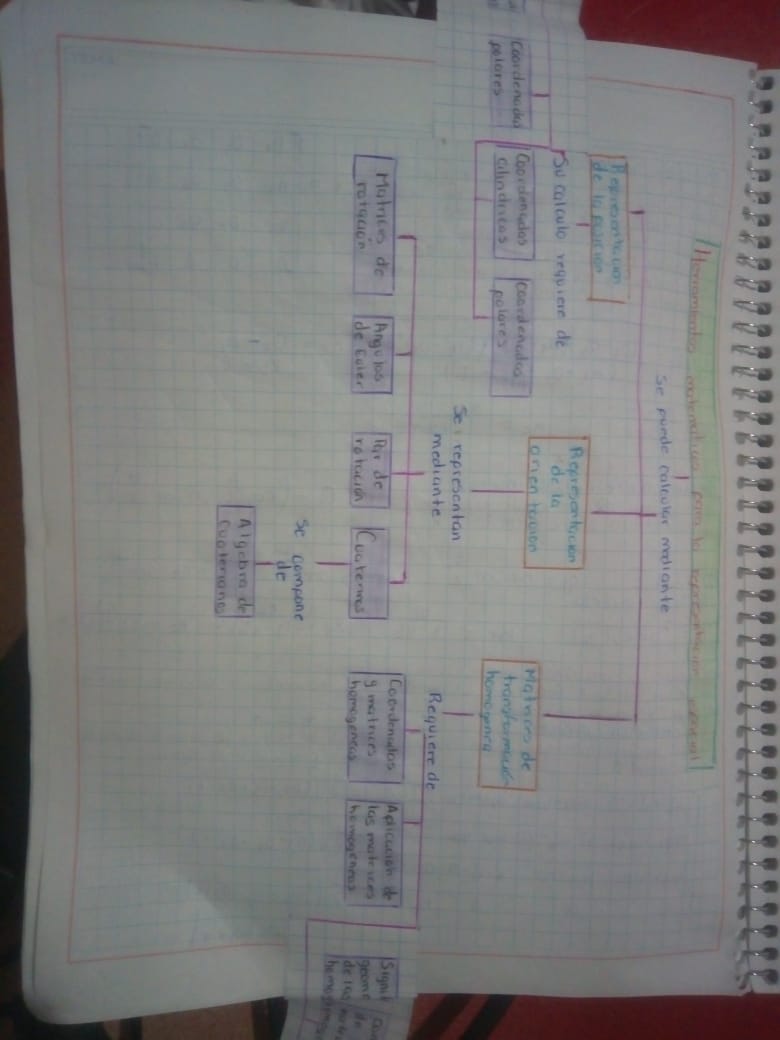 Herramientas matematicas para la representacion espacial
se puede calcular mediante
Representacion
de la posicion
Su calculo requiere de
Coordenadas
polares
Coordenadas
cilindricas
Coordenadas
polares
Representacion
de la
orientacion
Se representan
mediante
Matrices de
rotación
Angulos
de Euler
Par de
rotacion
Se compone
de
Algebra de
Matrices de
transformación
homogenea
Requiere de
Coordenadas
y matrices
homogeneas
Aplicacion de
las matrices
homogeneas